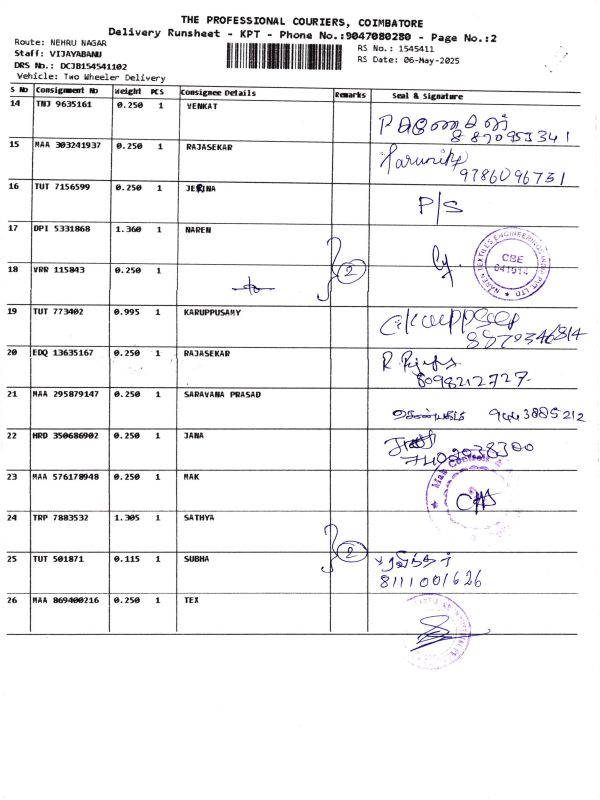 THE PROFESSIONAL COURIERS, COIMBATORE
Delivery Runsheet - KPT - Phone No.:9047080280 - Page No.:2
Route: NEHRU NAGAR
Staff: VIJAYABANU
DRS No.: DCJB154541102
Vehicle: Two Wheeler Delivery
RS No.: 1545411
RS Date: 06-May-2025
S No Consignment No Weight PCS Consignee Details Remarks Seal & Signature
14 TNJ 9635161 0.250 1 VENKAT
8870953341
15 MAA 303241937 0.250 1 RAJASEKAR
9786096731
16 TUT 7156599 0.250 1 JERINA P/S
17 DPI 5331868 1.360 1 NAREN
NAREN TEXTILES ENGINEERINGS INDIA PVT LTD
CBE
641014
18 VRR 115843 0.250 1 2
19 TUT 773402 0.995 1 KARUPPUSAMY
8870346814
20 EDQ 13635167 0.250 1 RAJASEKAR
8098212727
21 MAA 295879147 0.250 1 SARAVANA PRASAD
9443885212
22 HRD 350686902 0.250 1 JANA
7402038300
23 MAA 576178948 0.250 1 MAK
24 TRP 7883532 1.305 1 SATHYA
2
25 TUT 501871 0.115 1 SUBHA
8111001626
26 MAA 869400216 0.250 1 TEX